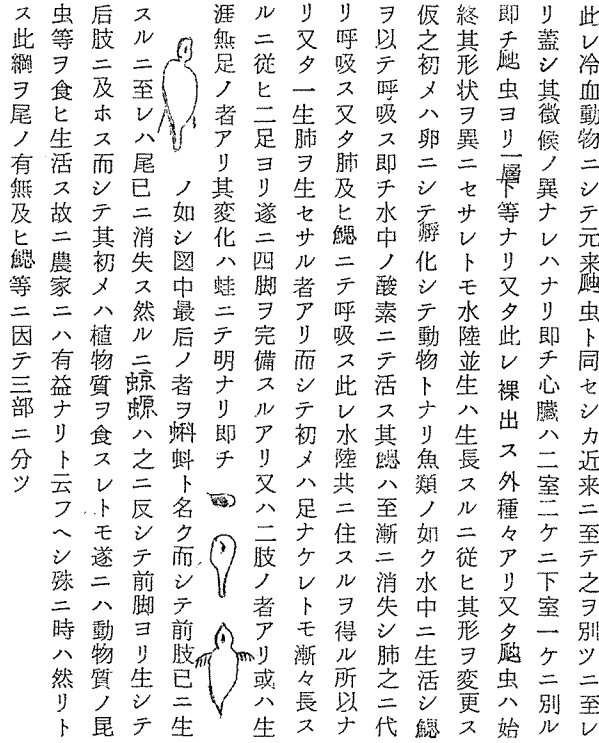 此レ冷血動物ニシテ元来爬虫ト同セシカ近来ニ至テ之ヲ別ツニ至レ
リ蓋シ其徴候ノ異ナレハナリ即チ心臓ハ二室二ケニ下室一ケニ別ル
即チ爬虫ヨリ一層下等ナリ又タ此レ裸出ス外種々アリ又タ爬虫ハ始
終其形状ヲ異ニセサレトモ水陸並生ハ生長スルニ従ヒ其形ヲ変更ス
仮之初メハ卵ニシテ孵化シテ動物トナリ魚類ノ如ク水中ニ生活シ鰓
ヲ以テ呼吸ス即チ水中ノ酸素ニテ活ス其鰓ハ至漸ニ消失シ肺之ニ代
リ呼吸ス又タ肺及ヒ鰓ニテ呼吸ス此レ水陸共ニ住スルヲ得ル所以ナ
リ又タ一生肺ヲ生セサル者アリ而シテ初メハ足ナケレトモ漸々長ス
ルニ従ヒ二足ヨリ遂ニ四脚ヲ完備スルアリ又ハ二肢ノ者アリ或ハ生
涯無足ノ者アリ其変化ハ蛙ニテ明ナリ即チ
ノ如シ図中最后ノ者ヲ蝌蚪ト名ク而シテ前肢已ニ生
スルニ至レハ尾已ニ消失ス然ルニ蠑螈ハ之ニ反シテ前脚ヨリ生シテ
后肢ニ及ホス而シテ其初メハ植物質ヲ食スレトモ遂ニハ動物質ノ昆
虫等ヲ食ヒ生活ス故ニ農家ニハ有益ナリト云フヘシ殊ニ時ハ然リト
ス此綱ヲ尾ノ有無及ヒ鰓等ニ因テ三部ニ分ツ